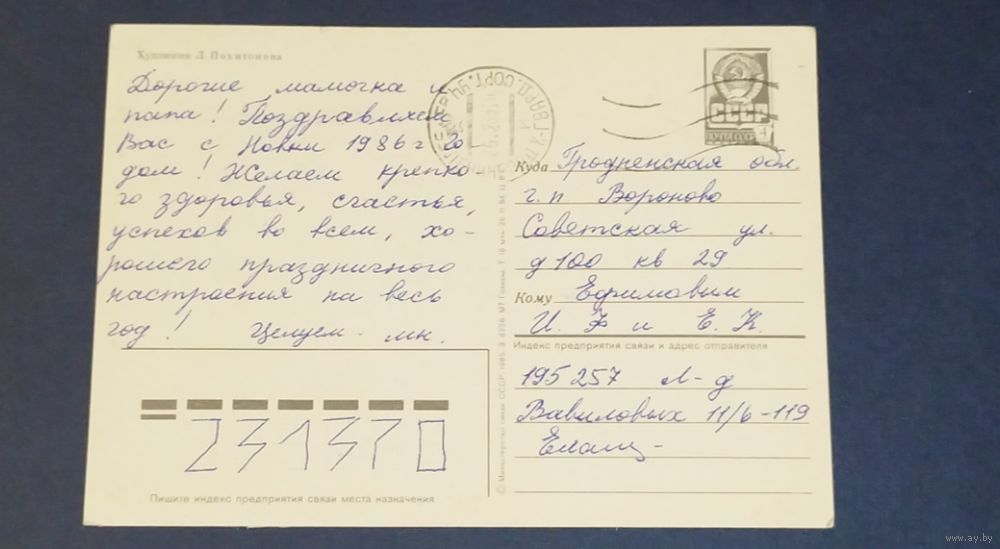 Художник Л. Похитонова
Дорогие мамочка и
папа! Поздравляем
Вас с Новым 1986 г го
дом! Желаем крепко
го здоровья, счастья,
успехов во всем, хо-
рошего праздничного
настроения на весь
год! Целуем - мы.
СССР
ПОЧТА СССР
Куда Гродненская обл.
г.п Вороново
Советская ул.
д 100 кв 29
Кому Ефимовым
И. Ф и Е. К.
Индекс предприятия связи и адрес отправителя
195257 Л-д
Вавиловых 11/6-119
231370
Пишите индекс предприятия связи места назначения
© Министерство связи СССР. 1985.
www.ay.by